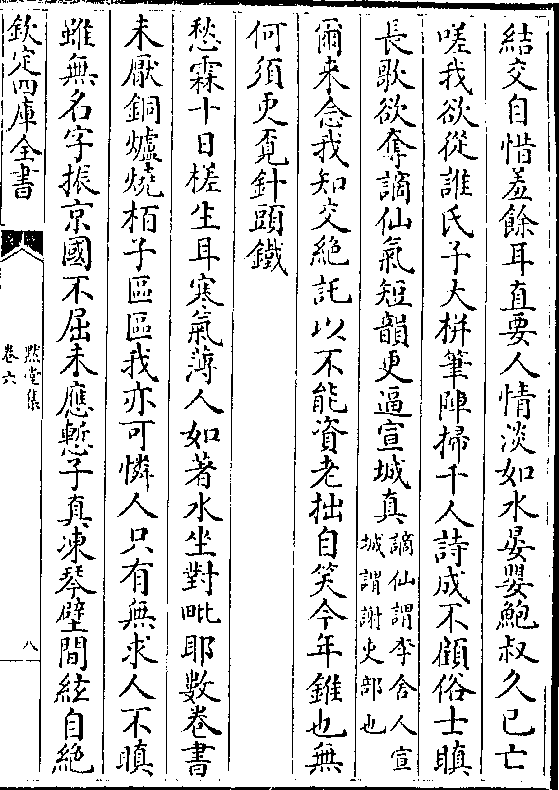 結交自惜羞餘耳直要人情淡如水晏嬰鮑叔久已亡
嗟我欲從誰氏子大栟筆陣掃千人詩成不顧俗士瞋
長歌欲奪謫仙氣短韻更逼宣城真謫仙謂李舍人宣
城謂謝史部也
爾來念我知交絶託以不能資老拙自笑今年錐也無
何須更覓針頭鐵
愁霖十日槎生耳寒氣薄人如著水坐對毗耶數卷書
未厭銅爐燒栢子區區我亦可憐人只有無求人不瞋
雖無名字振京國不屈未應慙子真凍琴壁間絃自絶
欽定四庫全書
默堂集
卷六
八